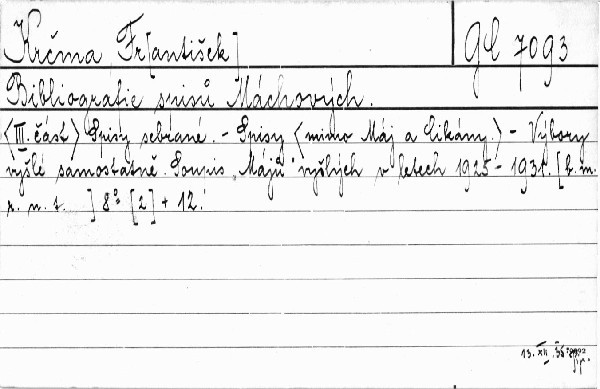 Krčma Fr[antišek]
Gl 7093
Bibliografie spisů Máchových.
<III. část> Spisy sebrané. - Spisy <mimo Máj a Cikány.> - Výbory
vyšlé samostatně. Soupis „Májů" vyšlých v letech 1925 - 1931. [b. m.
r. n. t. ] 8° [2] + 12.
13. XII.